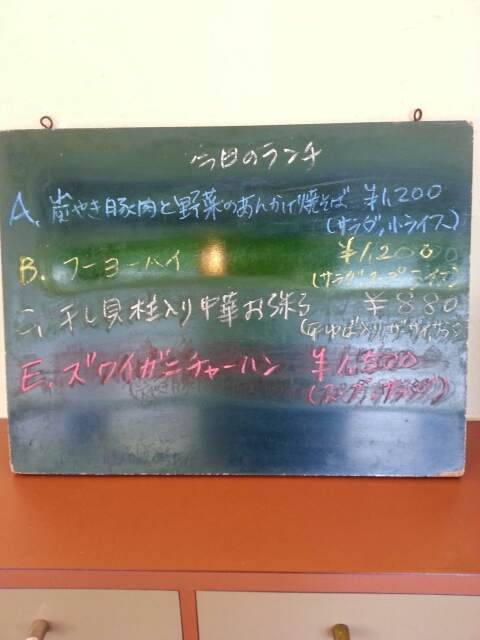 今日のランチ
A. 炭やき豚肉と野菜のあんかけ焼そば ¥1,200
(サラダ,小ライス)
B. フーヨーハイ ¥1,200
(サラダ,スープ,ライス)
C. 干し貝柱入り中華お粥 ¥880
E. ズワイガニチャーハン ¥1,500
(スープ,サラダ)